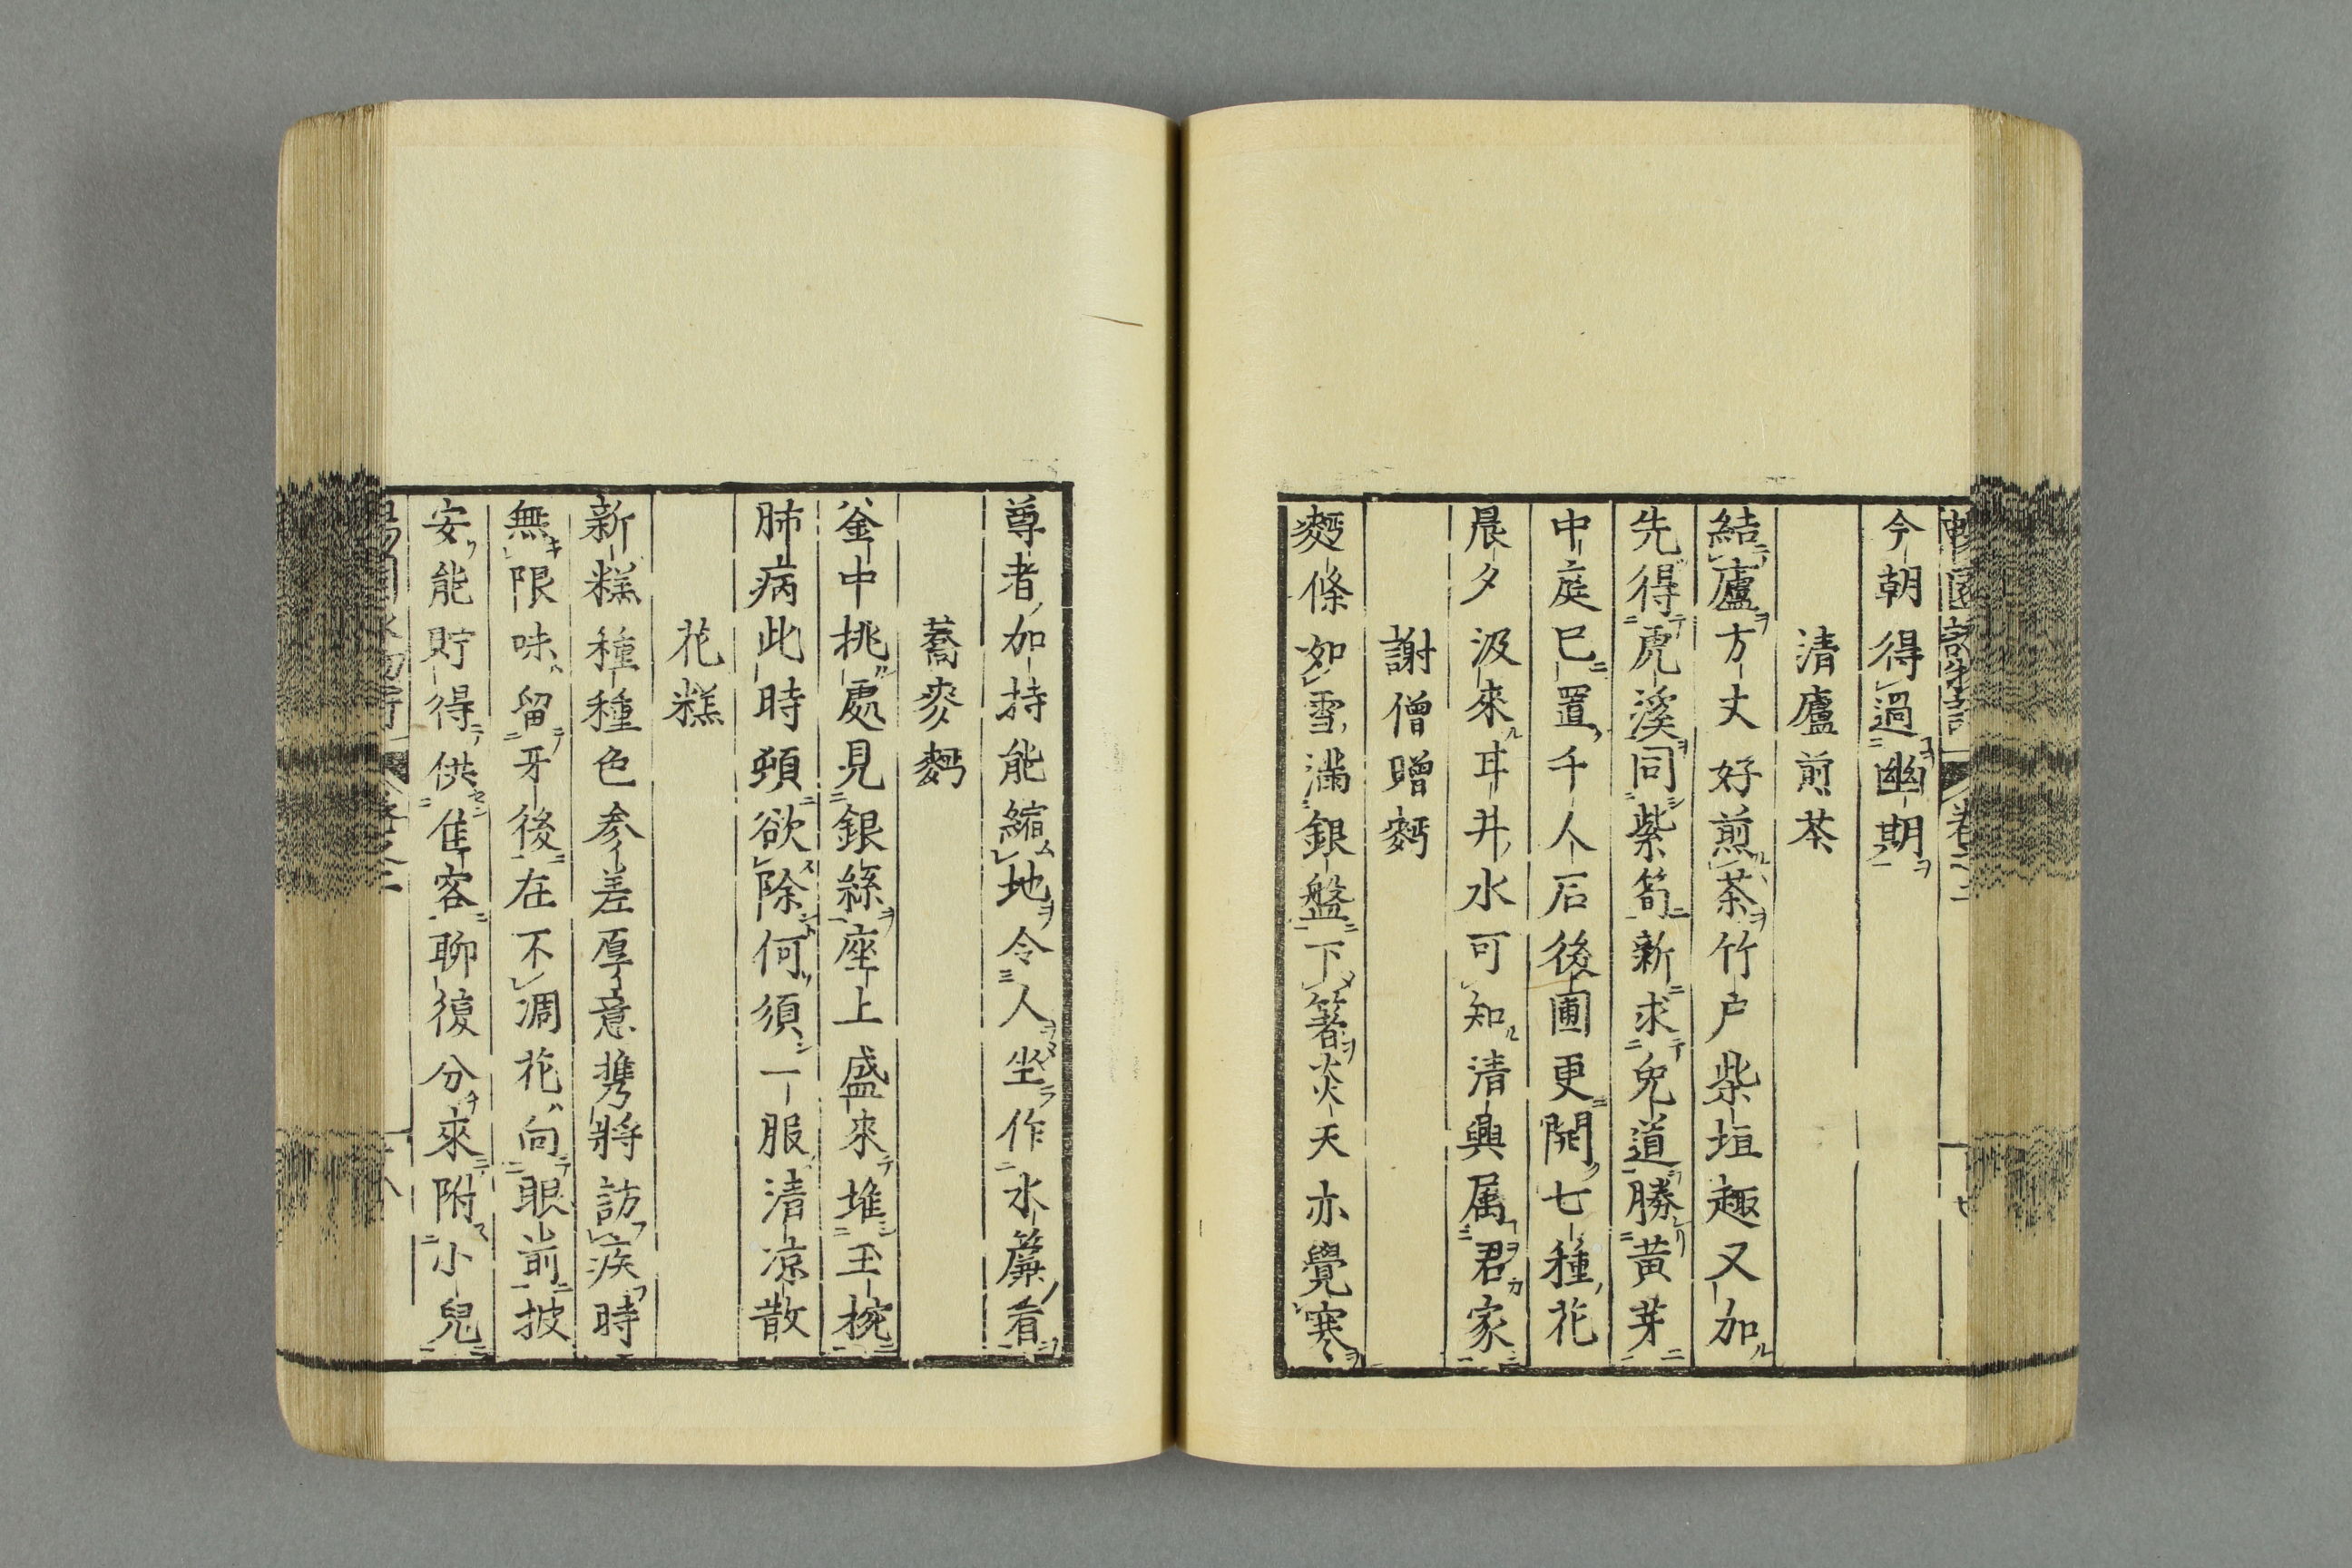 今朝得過幽期
清廬煎茶
結廬方丈好煎茶竹户柴垣趣又加
先得虎溪同紫筍新求兔道勝黃芽
中庭已置千人石後圃更開七種花
晨夕汲來耳井水可知清興属君家
謝僧贈麪
麪條如雪滿銀盤下箸炎天亦覺寒
尊者加持能縮地令人坐作水簾看
蕎麥麪
釜中挑處見銀絲座上盛來堆玉椀
肺病此時頻欲除何須一服清凉散
花糕
新糕種種色参差厚意携將訪疾時
無限味留牙後在不凋花向眼前披
安能貯得供佳客聊復分來附小兒